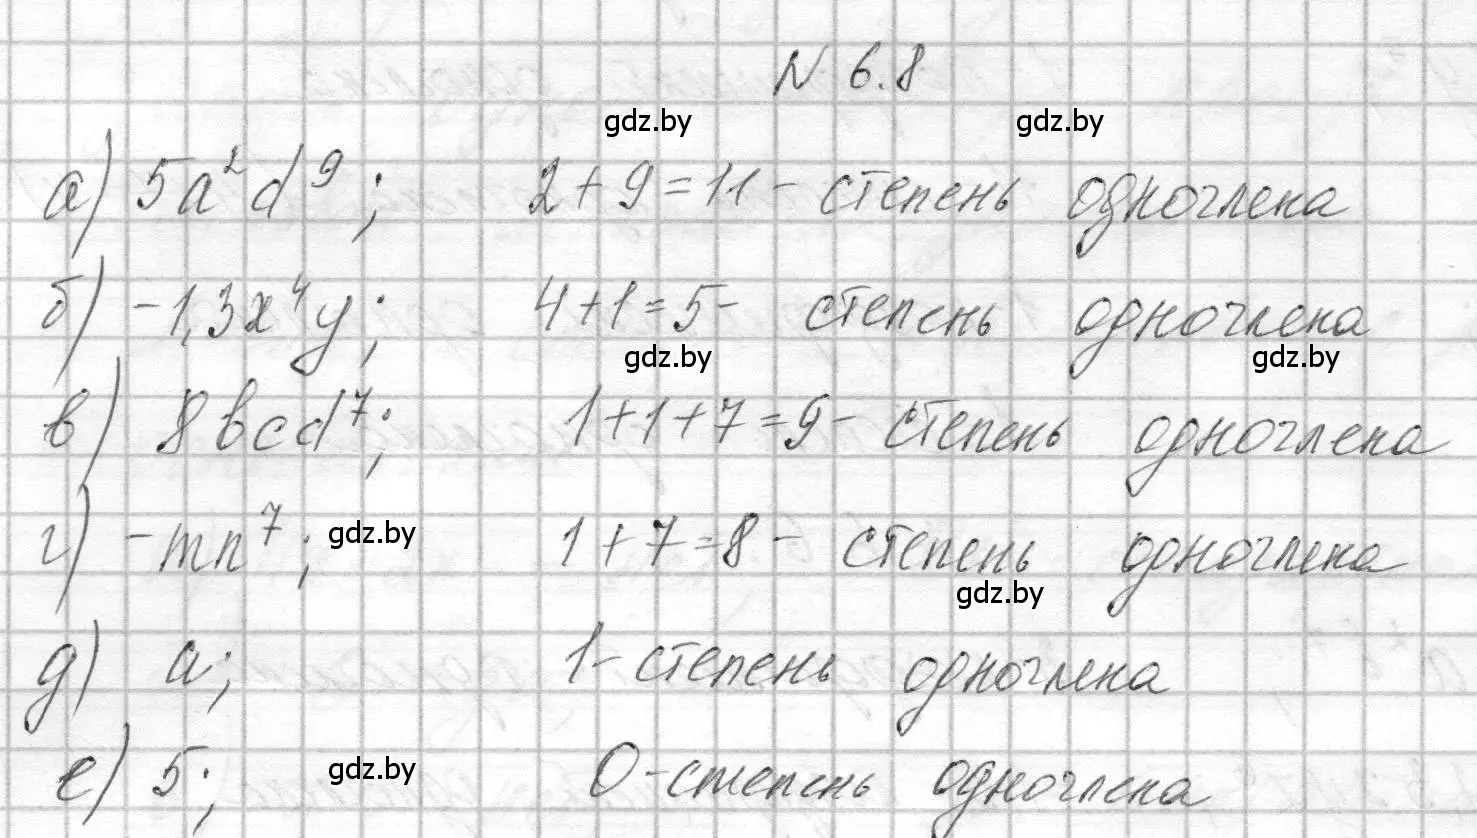 N 6.8
gdz.by gdz.by
а) 5a²d⁹; 2+9=11 - степень одночлена
б) -1,3x⁴y; 4+1=5- степень одночлена
gdz.by gdz.by
в) 8bcd⁷; 1+1+7=9- степень одночлена
г) -mn⁷; gdz.by 1+7=8 - степень одночлена
gdz.by
д) a; 1-степень одночлена
е) 5; gdz.by 0-степень одночлена